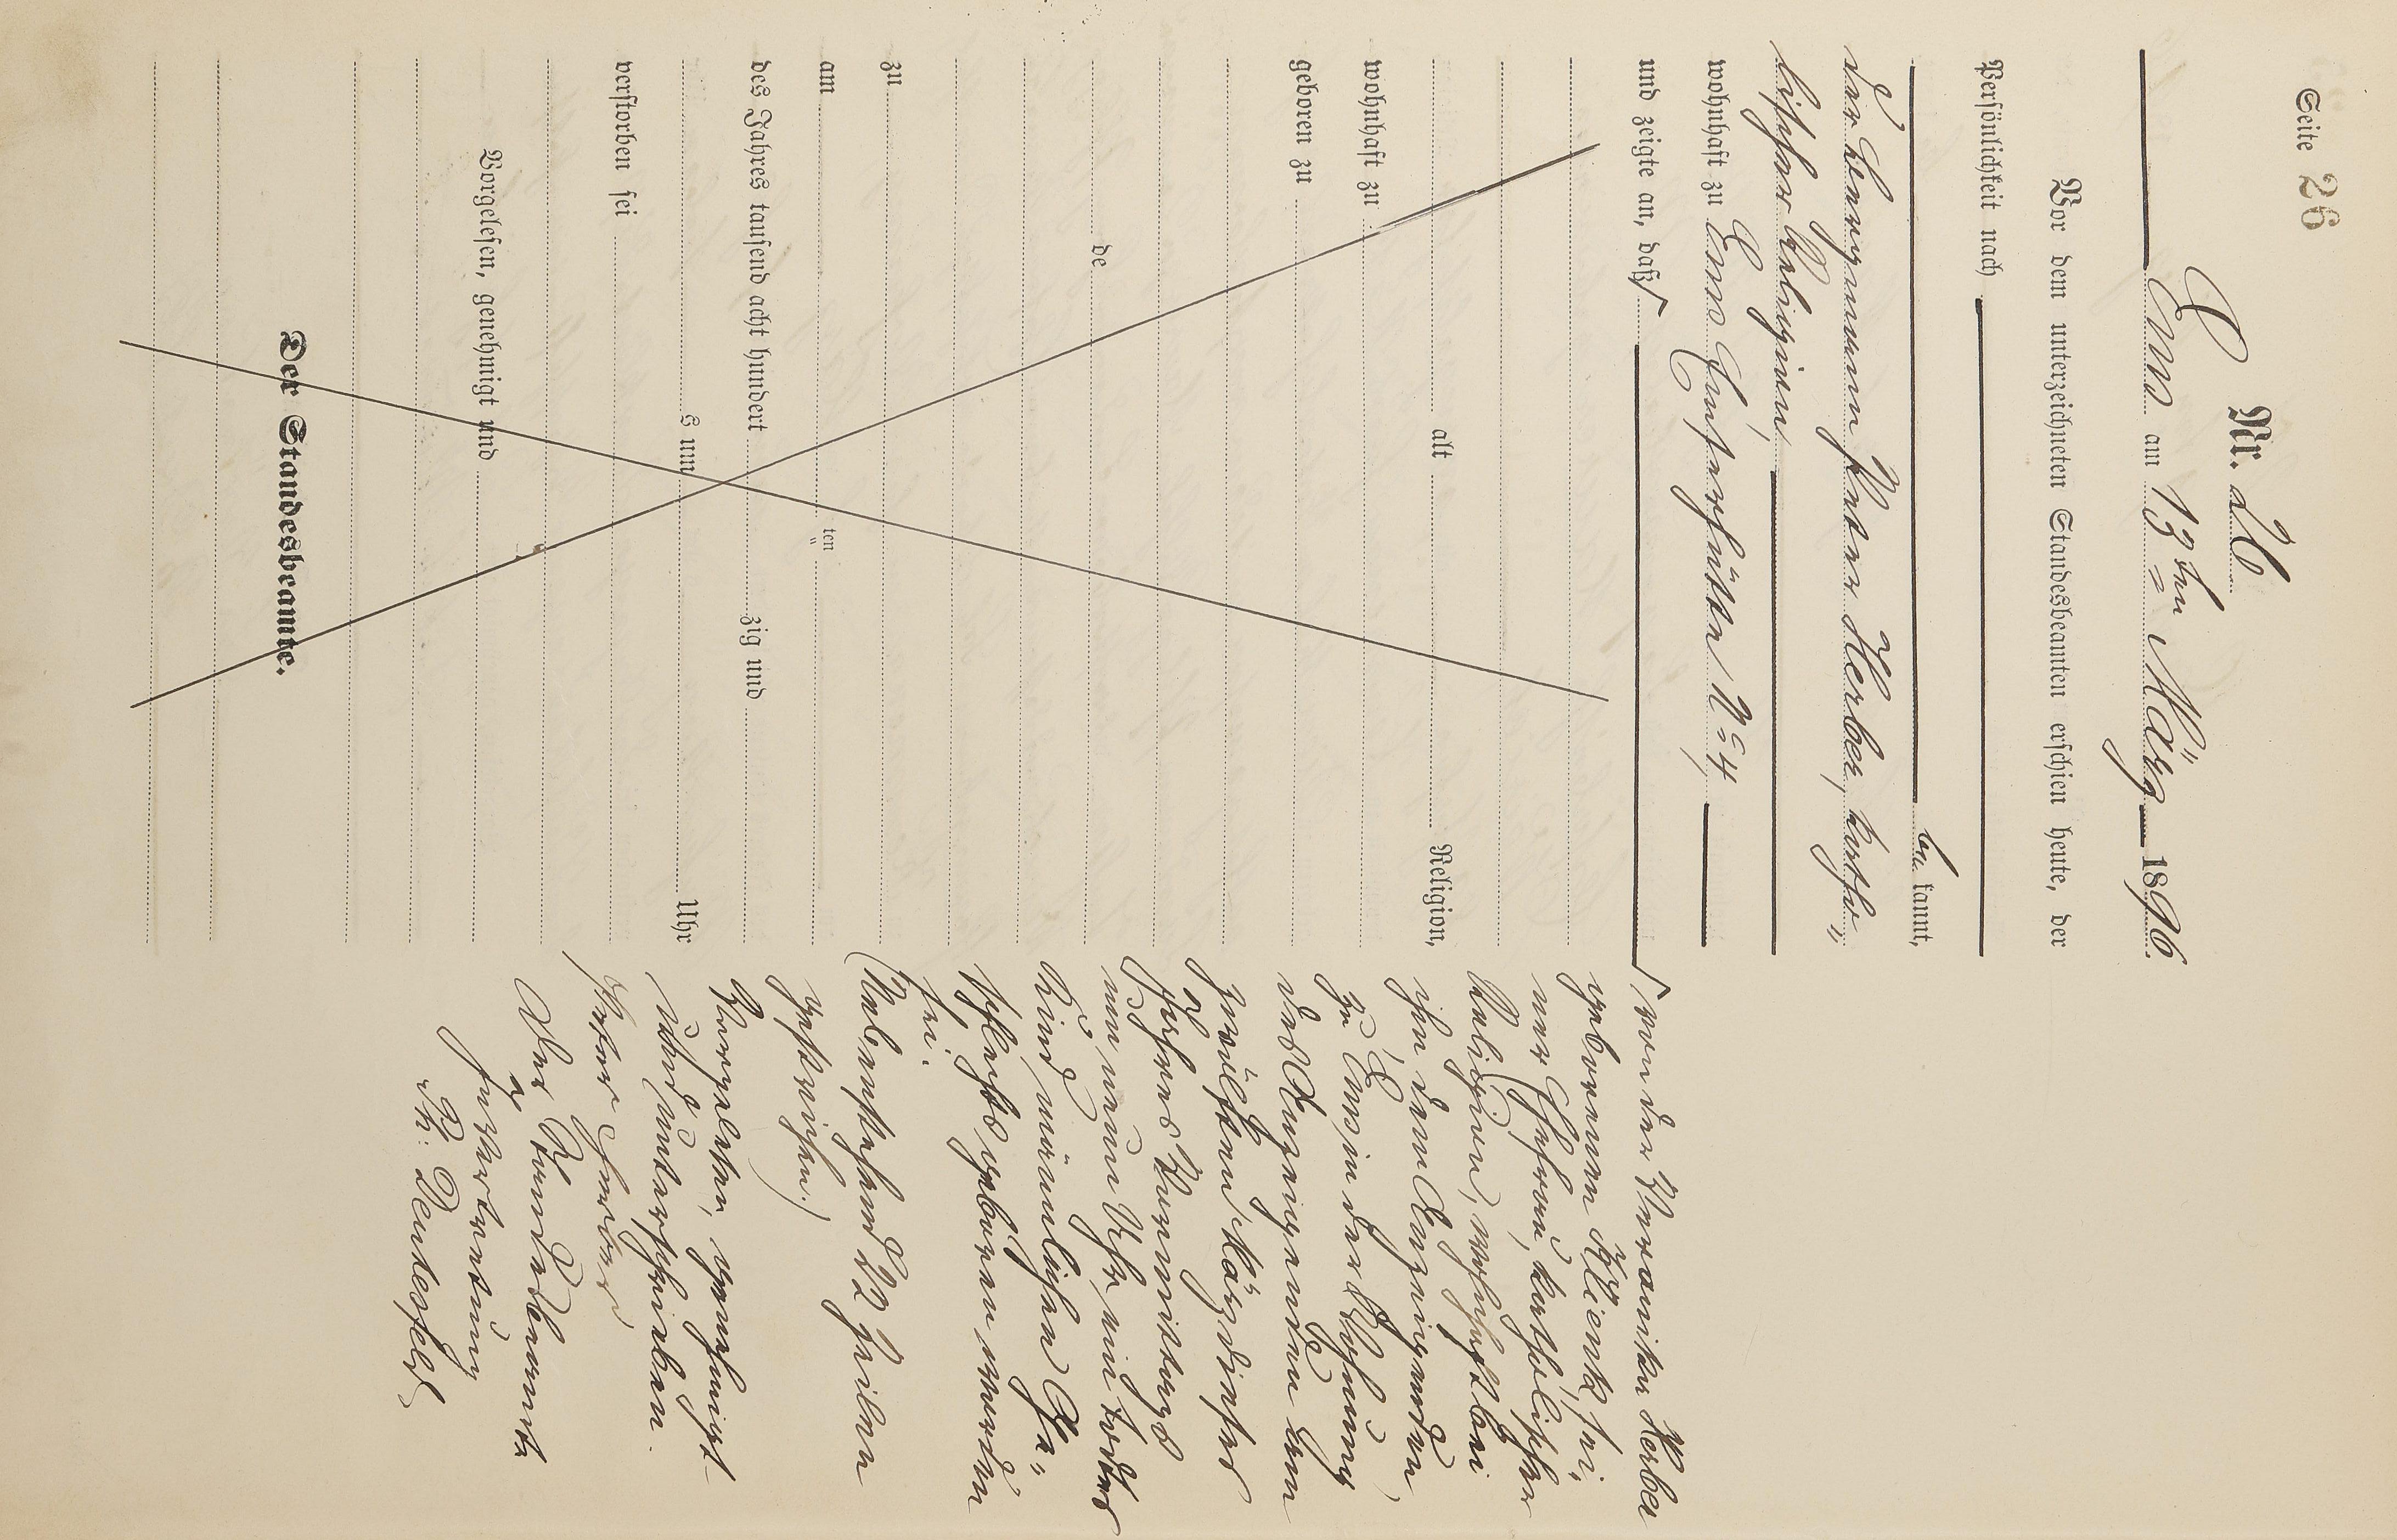 Seite 26
Nr. 26
Ems am 13ten März 1896.
Vor dem unterzeichneten Standesbeamten erschien heute, der
Persönlichkeit nach
be kannt,
der Bergmann Peter Herber, katho-
lischer Religion,
wohnhaft zu Ems Hüttenstraße No 4,
und zeigte an, daß
alt Religion,
wohnhaft zu
geboren zu
de
zu
am ten
des Jahres tausend acht hundert zig und
s um Uhr
verstorben sei
Vorgelesen, genehmigt und
Der Standesbeamte.
von der Veronika Herber
geborenen Klienk, sei-
ner Ehefrau, katholischer
Religion, wohnhaft bei
ihm dem Anzeigenden
zu Ems in der Wohnung
des Anzeigenden am
zwölften März dieses
Jahres Vormittags
um neun Uhr ein todtes
Kind männlichen Ge-
schlechts geboren worden
sei.
(Nebenstehend 22 Zeilen
gestrichen.)
Vorgelesen, genehmigt
und unterschrieben
Peter Herber
Der Standesbeamte
In Vertretung